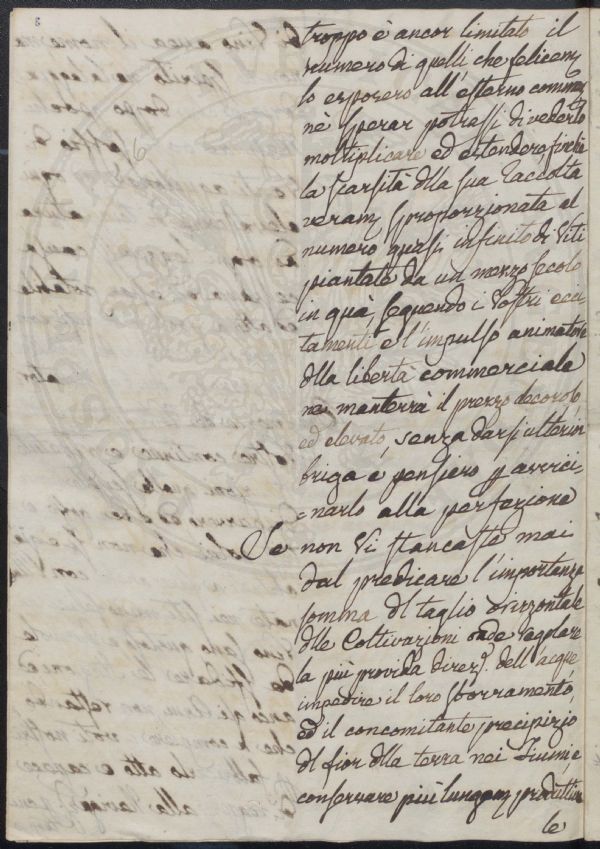 troppo è ancor limitato il
numero di quelli che felicem.
lo esposero all'esterno comm.
nè sperar potrassi di vederlo
moltiplicare ed estendere, finchè
la scarsità dlla sua raccolta
veram. sproporzionata al
numero quasi infinito di Viti
piantate da un mezzo secolo
in quà, seguendo i Vostri ecci
tamenti e l'impulso animatore
dlla libertà commerciale
ne manterrà il prezzo decoroso
ed elevato, senza darsi ulterior
briga e pensiero p avvici
=narlo alla perfezione
Se non Vi stancaste mai
dal predicare l'importanza
somma dl taglio orizzontale
dlle Coltivazioni onde regolare
la più provida direz. dell'acque
impedire il loro sborramento,
ed il concomitante precipizio
dl fior dlla terra nei Fiumi e
conservare più lungam. produttive
le